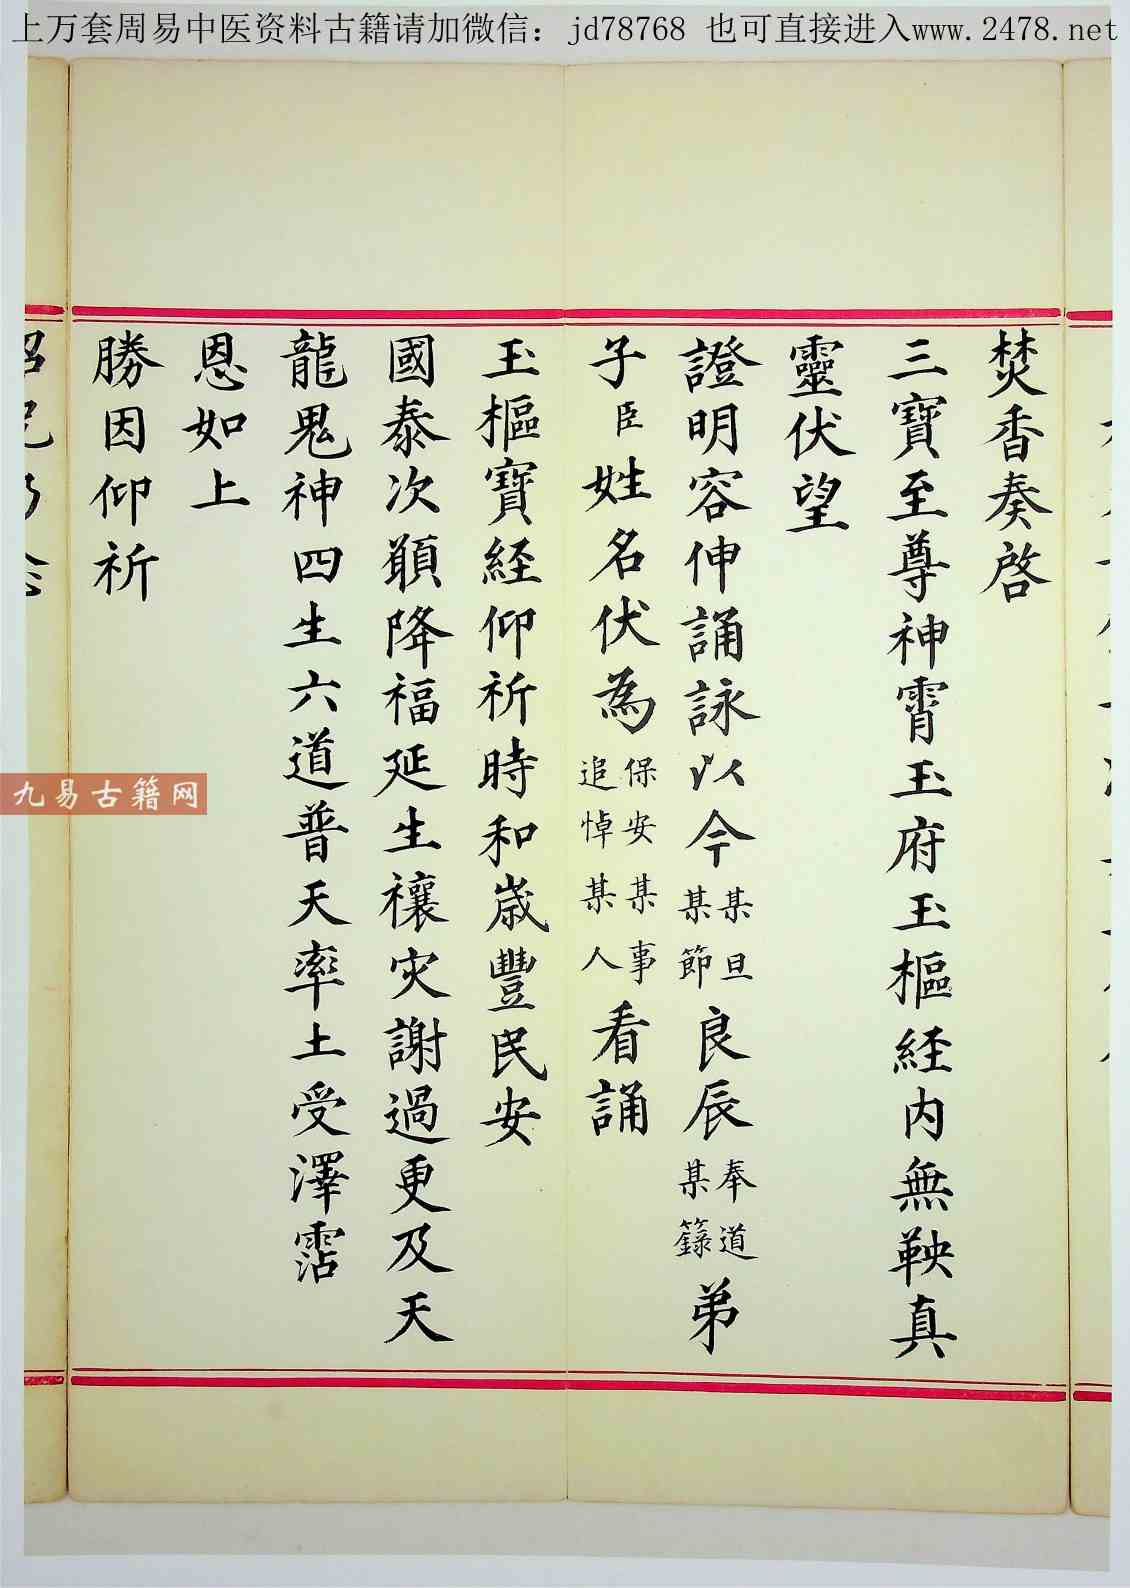 上万套周易中医资料古籍请加微信：jd78768 也可直接进入www.2478.net
焚香奏啓
三寶至尊神霄玉府玉樞経内無鞅真
靈伏望
證明容伸誦詠以今某旦某節良辰奉道某籙弟
子臣姓名伏為保安某事追悼某人看誦
玉樞寶経仰祈時和歲豐民安
國泰次願降福延生禳灾謝過更及天
龍鬼神四生六道普天率土受澤霑
恩如上
勝因仰祈
九易古籍网